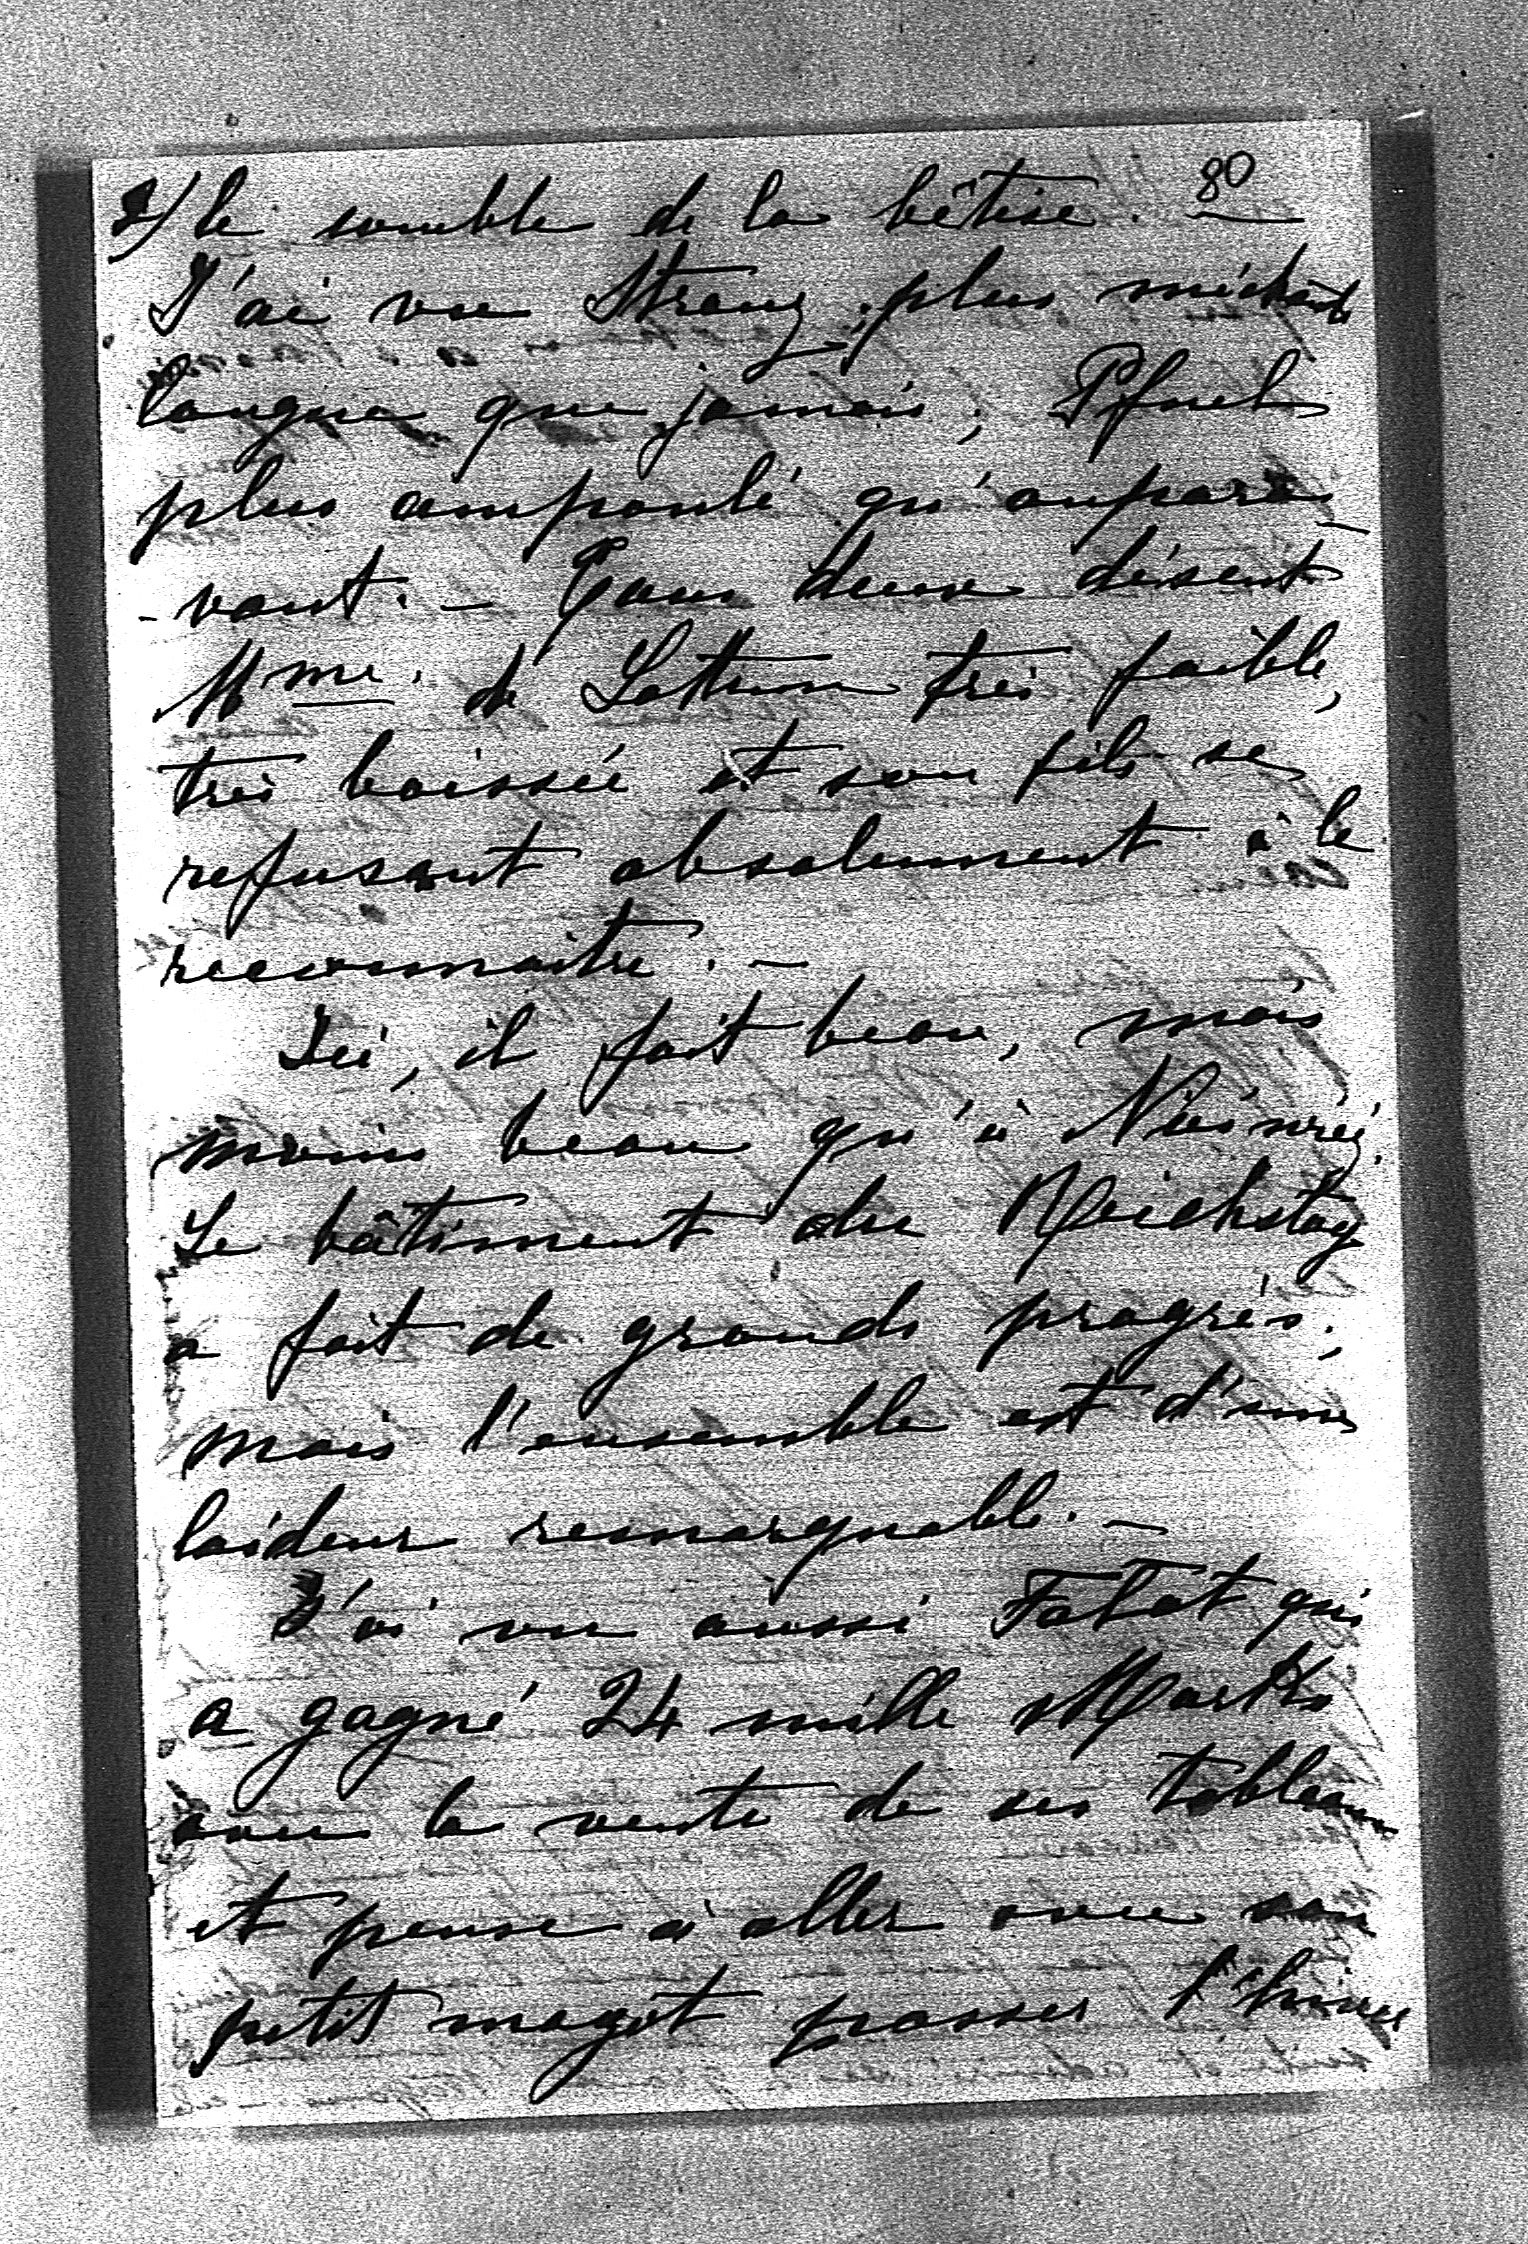 80
2/ le comble de la bêtise. —
J'ai vu Stranz, plus méchante
langue que jamais; Pfuel
plus ampoulé qu'aupara-
-vant. — Tous deux disent
Mme. de Lottum très faible,
très baissée et son fils se
refusant absolument à le
reconnaitre. —
Ici, il fait beau, mais
moins beau qu'à
Le bâtiment du Reichstag
a fait de grands progrès;
mais l'ensemble est d'une
laideur remarquable. —
J'ai vu aussi Fabat qui
a gagné 24 mille Marks
avec la vente de ses tableaux
et pense à aller avec son
petit magot passer l'hiver